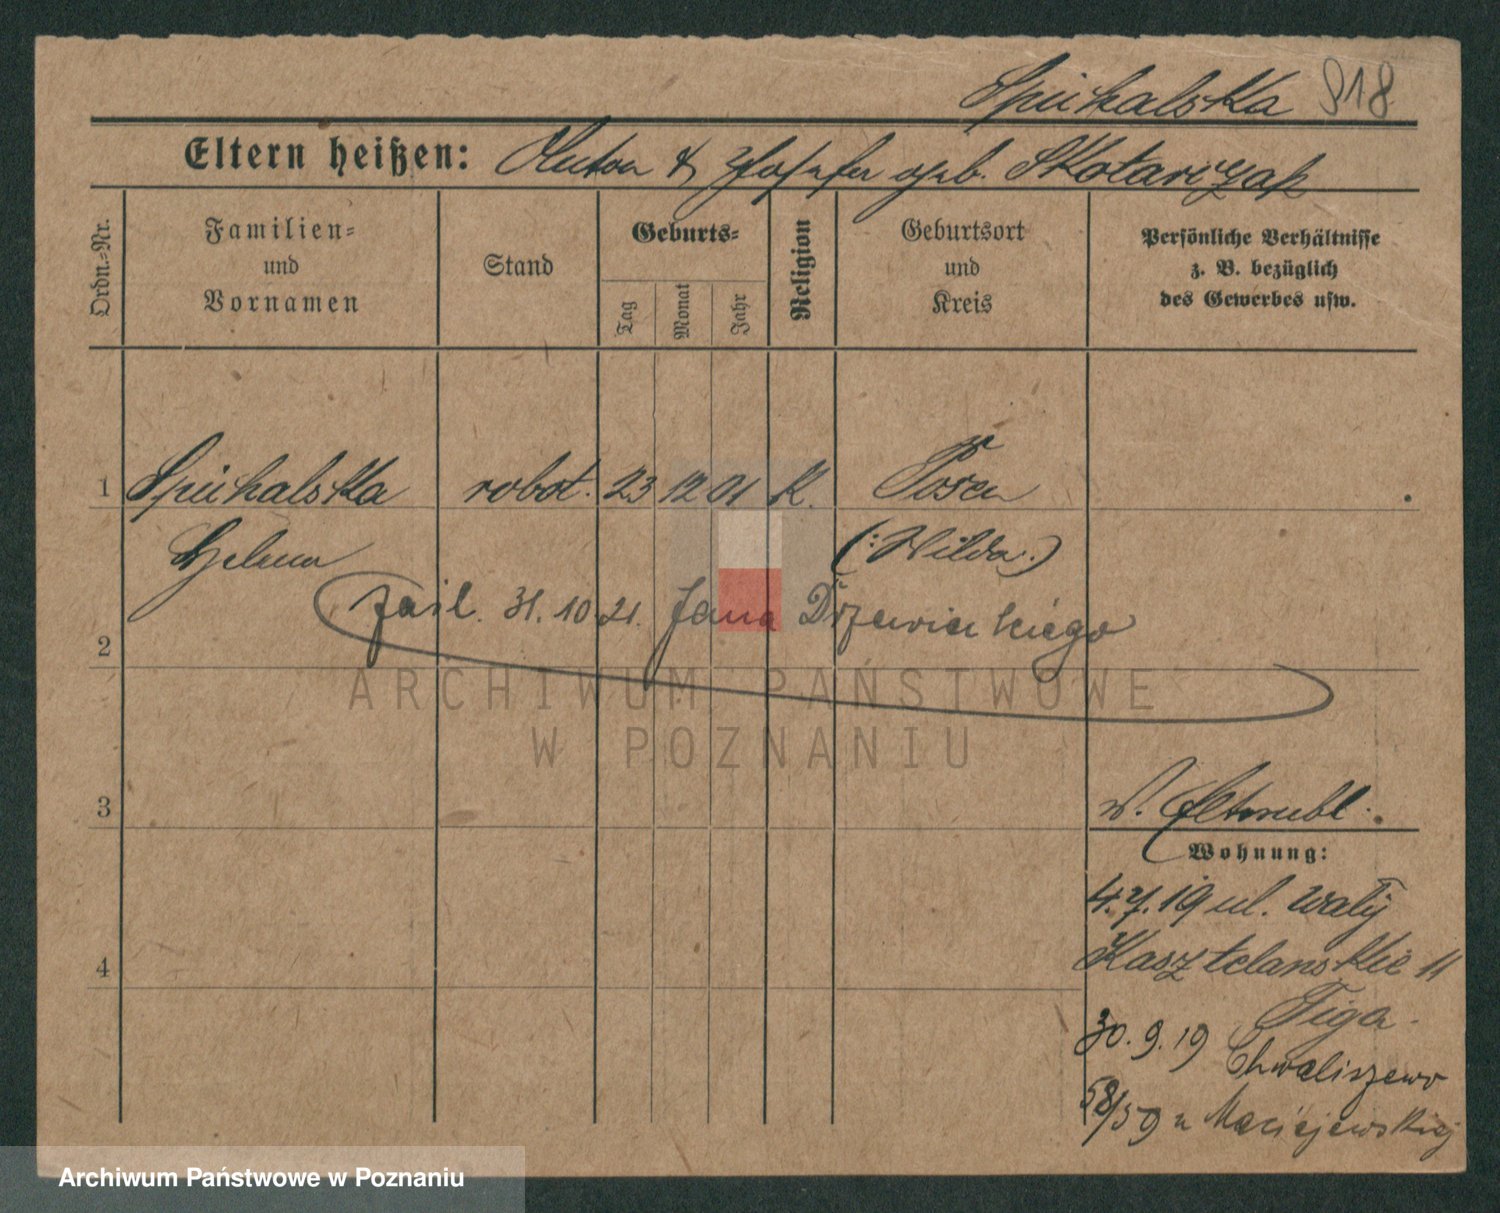 Spichalska 918
Eltern heißen: Anton & Josefa geb. Skotarczak
Ordn.-Nr.
Familien-
und
Vornamen
Stand
Geburts-
Tag
Monat
Jahr
Religion
Geburtsort
und
Kreis
Persönliche Verhältnisse
z. B. bezüglich
des Gewerbes usw.
1 Spichalska robot. 23 12 01 K. Posen
Helena (: Wilda :)
zaśl. 31. 10 21. Jana Drzewieckiego
2
ARCHIWUM PAŃSTWOWE
W POZNANIU
3
Wohnung:
4. 7. 19 ul. Wały
Kasztelanskie 11
4
Figa.
30. 9. 19 Chwaliszewo
58/59 u Maciejewskiej
Archiwum Państwowe w Poznaniu